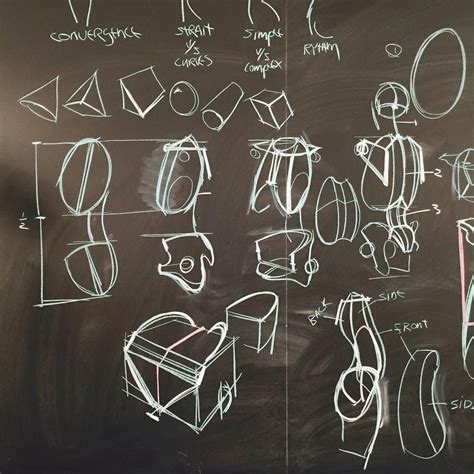 CONVERGENCE
STRAIT
V/S
CURVES
Simple
V/S
Complex
RYTHM
1
1
2
3
1/2
BACK
SIDE
FRONT
SID